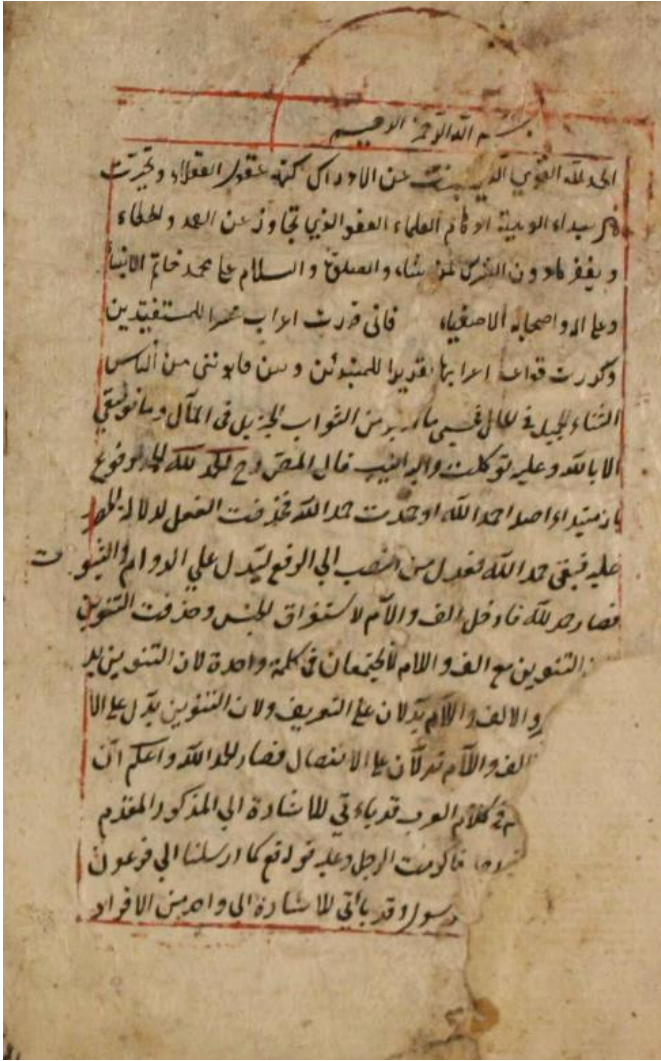 بسم الله الرحمن الرحيم
الحمد لله القوي الذي عن الادراك كنهه عقول العقلاء وتحيرت
في بيداء العلماء العفو الذي تجاوز عن العمد والخطاء
ويغفر مادون الشرك لمن يشاء والصلوة والسلام على محمد خاتم الانبياء
وعلى اله واصحابه الاصفياء فانى اعراب للمستفيدين
وكررت قواعد اعرابها تقديرا للمبتدئين من الناس
الثناء الجميل في الحال من الثواب الجزيل في المآل وما توفيقي
الا بالله وعليه توكلت واليه انيب قال المص رح الحمد لله الحمد مرفوع
بانه مبتداء اصله احمد الله او حمدت حمد الله فحذفت الفعل لدلالة المصدر
عليه فبقى حمد الله فعدل من النصب الي الرفع ليدل علي الدوام والثبو
ت
فصار حمد لله فادخل الف والام لاستغراق الجنس وحذفت التنوين
التنوين مع الف واللام لا يجتمعان في كلمة واحدة لان التنوين يد
والالف واللام يدلان على التعريف ولان التنوين يدل على الا
الف واللام تدلان على الانفصال فصار الحمد لله واعلم ان
في كلام العرب قد ياءتي للاشارة الي المذكور المقدم
فاكرمت الرجل وعليه قوله تع كما ارسلنا الي فرعون
رسولا وقد ياتي للاشارة الى واحد من الافراد